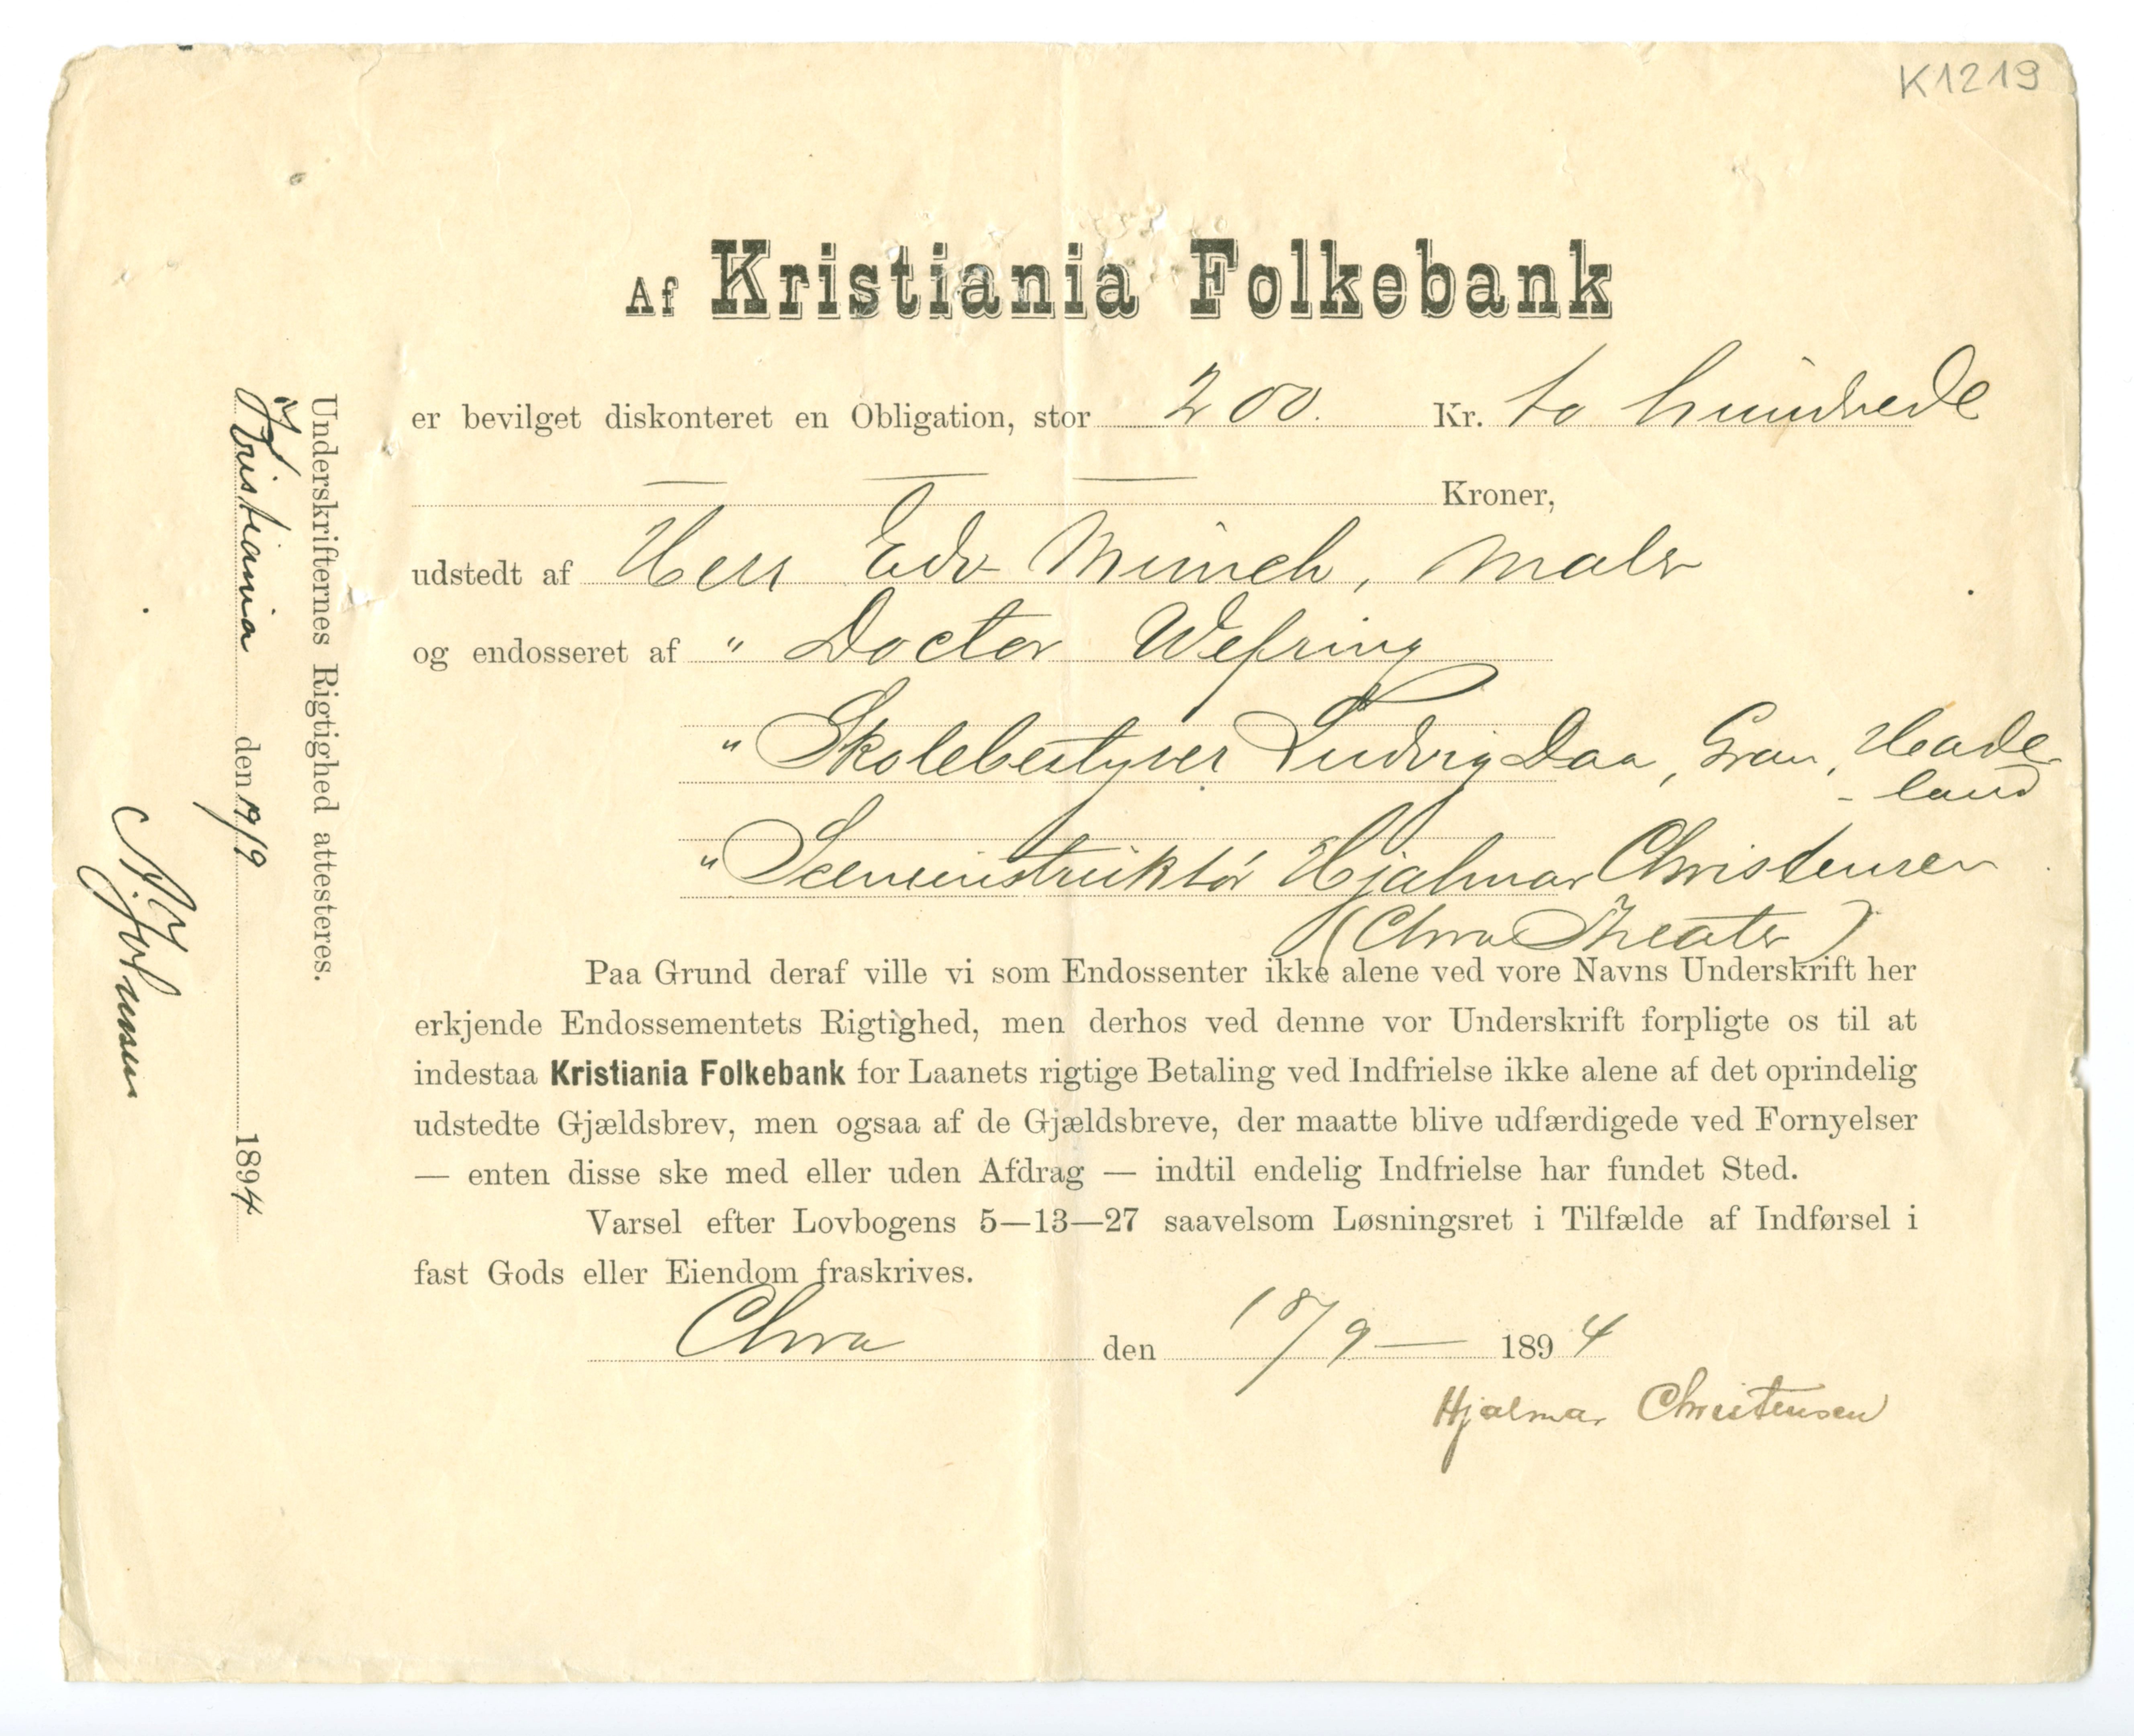 K1219
Af Kristiania Folkebank
er bevilget diskonteret en Obligation, stor 200. Kr. to hundrede
— — — Kroner,
udstedt af Herr Edv Münch, Maler
og endosseret af " Doctor Wefring
" Skolebestyrer Ludvig Daa, Gran, Hade-
- land
" Sceneinstruktør Hjalmar Christensen
(Chra Theater)
Paa Grund deraf ville vi som Endossenter ikke alene ved vore Navns Underskrift her
erkjende Endossementets Rigtighed, men derhos ved denne vor Underskrift forpligte os til at
indestaa Kristiania Folkebank for Laanets rigtige Betaling ved Indfrielse ikke alene af det oprindelig
udstedte Gjældsbrev, men ogsaa af de Gjældsbreve, der maatte blive udfærdigede ved Fornyelser
— enten disse ske med eller uden Afdrag — indtil endelig Indfrielse har fundet Sted.
Varsel efter Lovbogens 5—13—27 saavelsom Løsningsret i Tilfælde af Indførsel i
fast Gods eller Eiendom fraskrives.
Chra den 18/9 — 1894
Hjalmar Christensen
Underskrifternes Rigtighed attesteres.
Kristiania den 19/9 1894